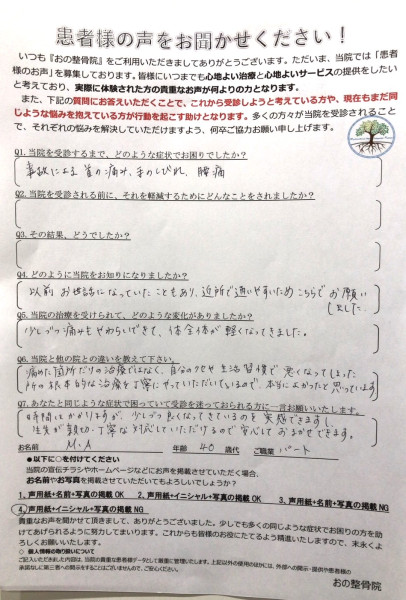 患者様の声をお聞かせください！
いつも『おの整骨院』をご利用いただきましてありがとうございます。ただいま、当院では「患者
様のお声」を募集しております。皆様にいつまでも心地よい治療と心地よいサービスの提供をしたい
と考えており、実際に体験された方の貴重なお声が何よりの力となります。
また、下記の質問にお答えいただくことで、これから受診しようと考えている方や、現在もまだ同
じような悩みを抱えている方が行動を起こす助けとなります。多くの方々が当院を受診されること
で、それぞれの悩みを解決していただけますよう、何卒ご協力お願い申し上げます。
Q1. 当院を受診するまで、どのような症状でお困りでしたか？
事故による首の痛み、手のしびれ、腰痛
Q2. 当院を受診される前に、それを軽減するためにどんなことをされましたか？
Q3. その結果、どうでしたか？
Q4. どのように当院をお知りになりましたか？
以前お世話になっていたこともあり、近所で通いやすいためこちらでお願い
しました。
Q5. 当院の治療を受けられて、どのような変化がありましたか？
少しづつ痛みもやわらいできて、体全体が軽くなってきました。
Q6. 当院と他の院との違いを教えて下さい。
痛めた箇所だけの治療ではなく、自分のクセや生活習慣で悪くなってしまった
所の根本的な治療を丁寧にやっていただいているので、本当によかったと思っています
Q7. あなたと同じような症状で困っていて受診を迷っておられる方に一言お願いいたします。
時間はかかりますが、少しづつ良くなってきているのを実感できますし、
先生が親切、丁寧な対応していただけるので安心しておまかせできます。
お名前 M.A 年齢 40 歳代 ご職業 パート
●以下に○を付けてください
当院の宣伝チラシやホームページなどにお声を掲載させていただく場合、
お名前やお写真を掲載させていただいてもよろしいでしょうか？
1、声用紙+名前+写真の掲載 OK 2、声用紙+イニシャル+写真の掲載 OK 3、声用紙+名前+写真の掲載 NG
4、声用紙+イニシャル+写真の掲載 NG
貴重なお声を聞かせて頂きまして、ありがとうございました。少しでも多くの同じような症状でお困りの方を助
けてあげられるように努力してまいります。これからも皆様のお役にたてるよう精進いたしますので、末永くよ
ろしくお願いいたします。
◇ 個人情報の取り扱いについて
ご記入いただきました内容は、当院の貴重な患者様データとして厳重に管理いたします。上記以外の使用のほかには、外部への開示・提供や患者様の
承諾なしに第三者への開示をすることはございませんので、ご安心ください。
おの整骨院